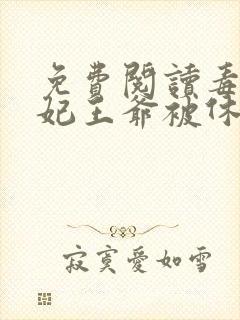 免費閱讀毒
妃王爺被休
寂寞愛如雪